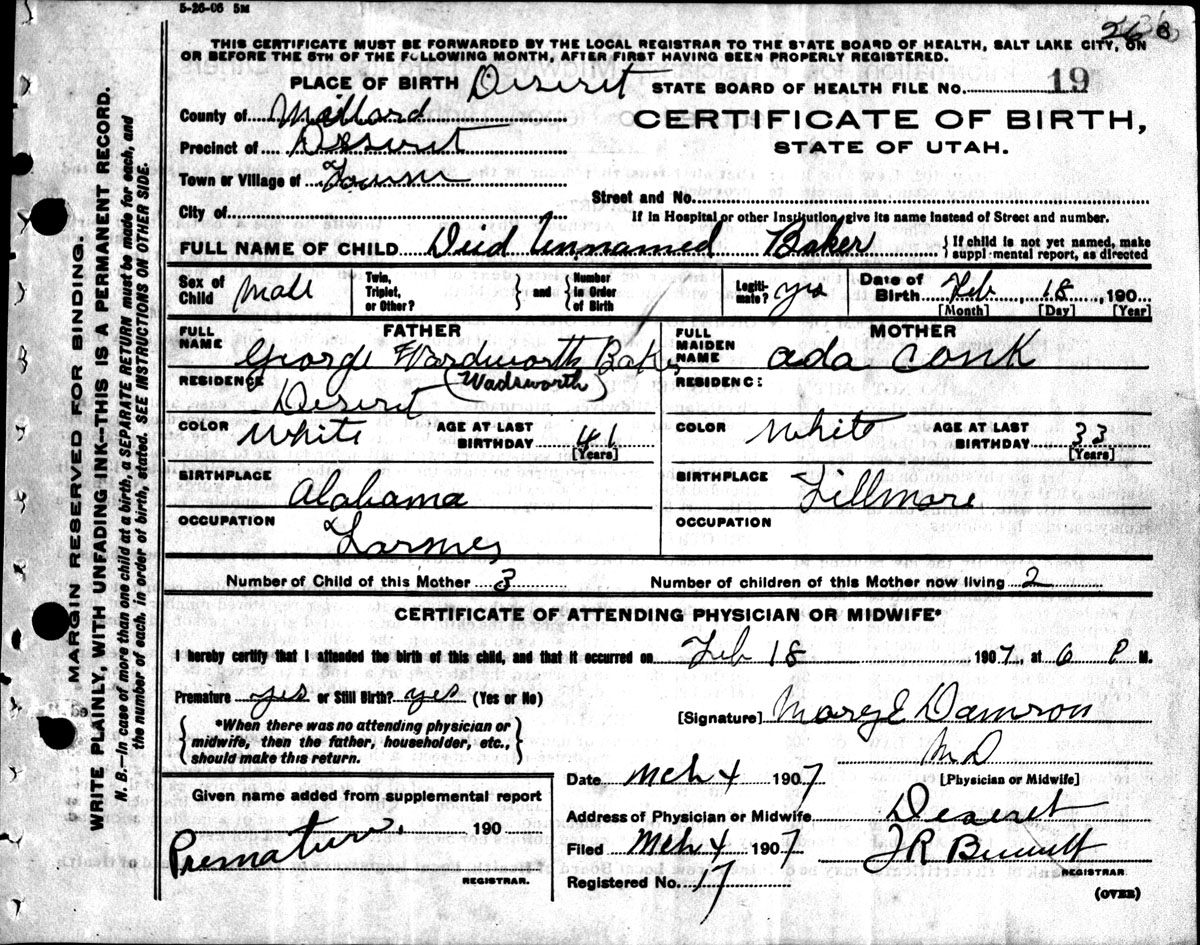 5-26-06 5M
26
THIS CERTIFICATE MUST BE FORWARDED BY THE LOCAL REGISTRAR TO THE STATE BOARD OF HEALTH, SALT LAKE CITY, ON
OR BEFORE THE 5TH OF THE FOLLOWING MONTH, AFTER FIRST HAVING BEEN PROPERLY REGISTERED.
PLACE OF BIRTH Deseret STATE BOARD OF HEALTH FILE NO. 19
County of Millard
CERTIFICATE OF BIRTH,
Precinct of Deseret
STATE OF UTAH.
Town or Village of Town
Street and No.
City of
If in Hospital or other Institution, give its name instead of Street and number.
FULL NAME OF CHILD Died Unnamed Baker
{If child is not yet named, make
supplemental report, as directed
Sex of Child Male
Twin, Triplet, or Other?
} and {
Number in Order of Birth
Legitimate? yes
Date of Birth Feb, 18, 190
[Month] [Day] [Year]
FATHER
FULL NAME George Wardworth Baker
(Wadsworth)
RESIDENCE Deseret
COLOR White
AGE AT LAST BIRTHDAY 41
[Years]
BIRTHPLACE Alabama
OCCUPATION Farmer
MOTHER
FULL MAIDEN NAME Ada Conk
RESIDENCE
COLOR White
AGE AT LAST BIRTHDAY 33
[Years]
BIRTHPLACE Fillmore
OCCUPATION
Number of Child of this Mother 3 Number of children of this Mother now living 2
CERTIFICATE OF ATTENDING PHYSICIAN OR MIDWIFE*
I hereby certify that I attended the birth of this child, and that it occurred on Feb 18 1907, at 6 P M.
Premature yes or Still Birth? yes (Yes or No)
[Signature] Mary E Damron
{*When there was no attending physician or
midwife, then the father, householder, etc.,
should make this return.}
M D
[Physician or Midwife]
Date Mch 4 1907
Given name added from supplemental report
Address of Physician or Midwife Deseret
190
Premature.
Filed Mch 4 1907 J R Bennett
REGISTRAR.
REGISTRAR.
Registered No. 17
(OVER)
MARGIN RESERVED FOR BINDING.
WRITE PLAINLY, WITH UNFADING INK—THIS IS A PERMANENT RECORD.
N. B.—In case of more than one child at a birth, a SEPARATE RETURN must be made for each, and
the number of each, in order of birth, stated. SEE INSTRUCTIONS ON OTHER SIDE.